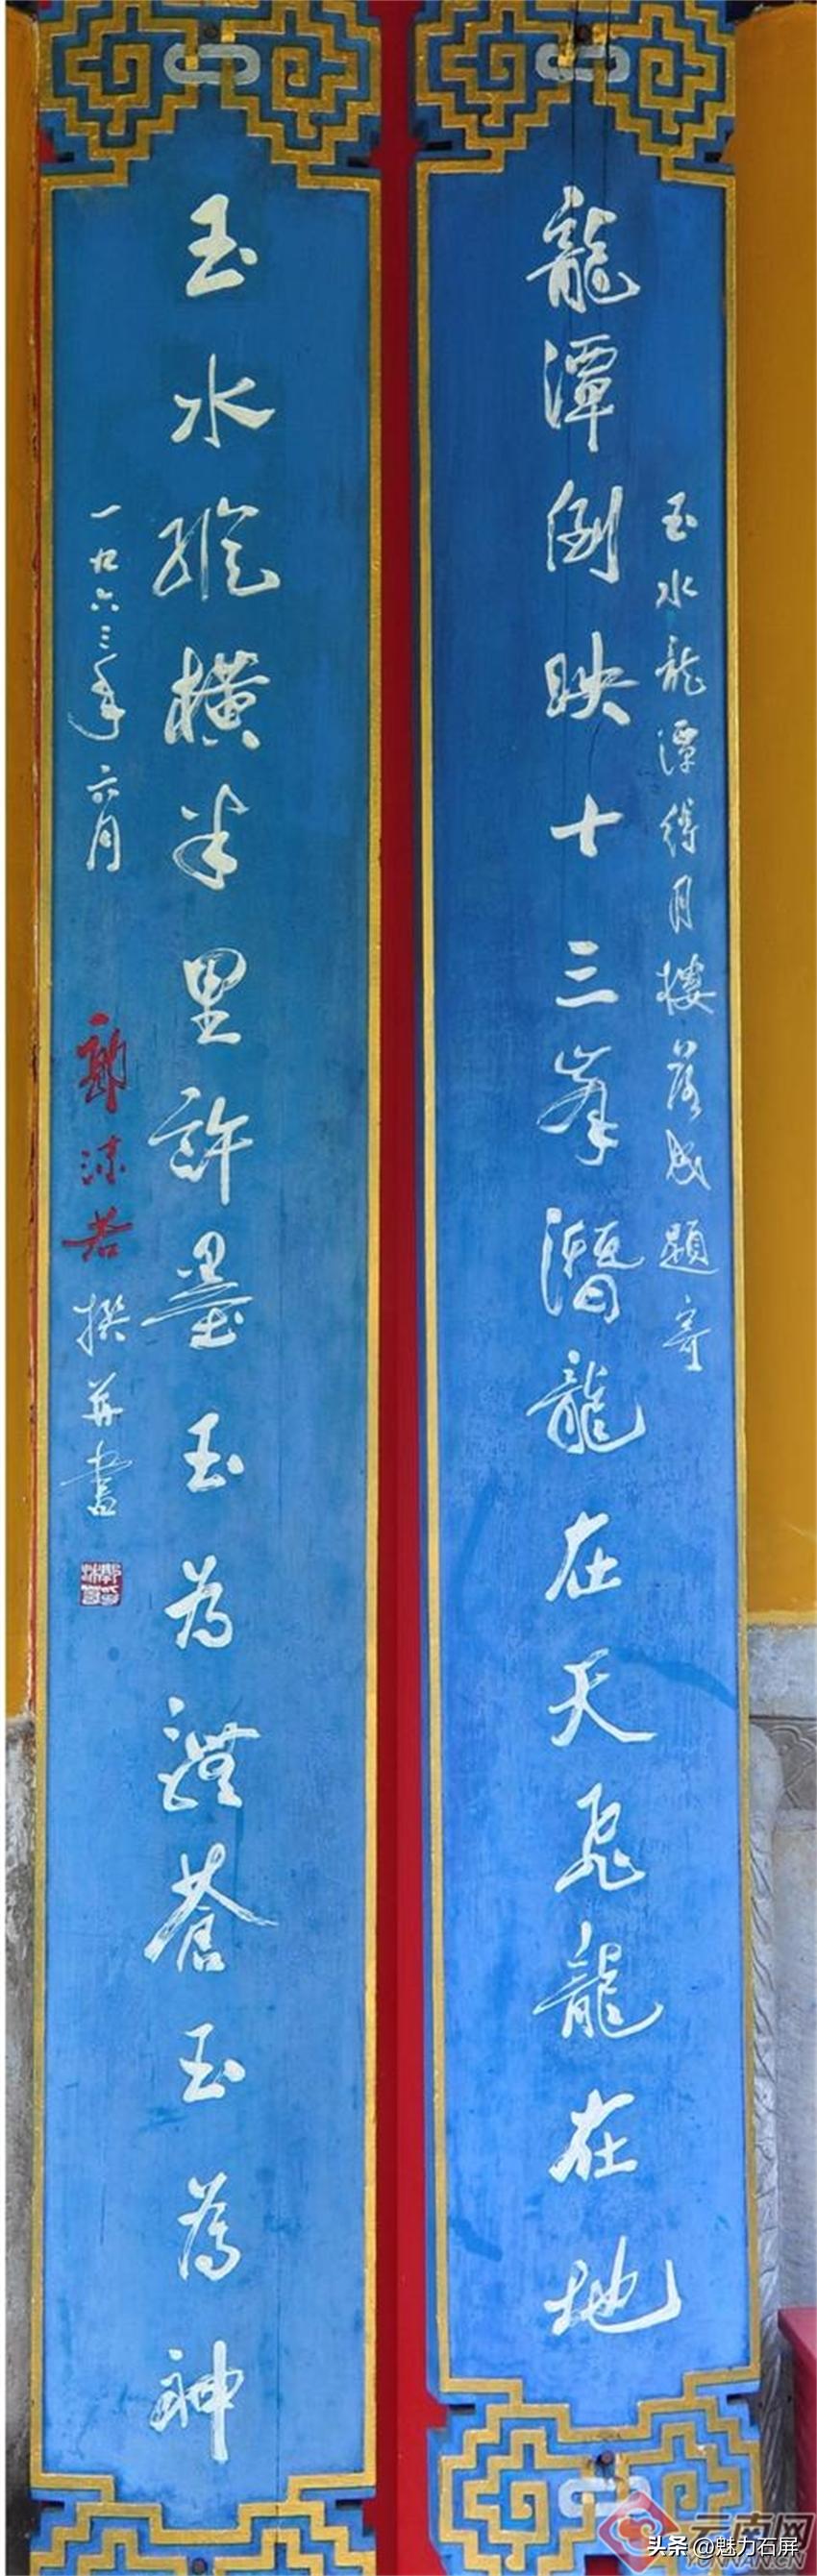 玉水龍潭得月樓落成題寄
龍潭倒映十三峯潛龍在天飛龍在地
玉水縱橫半里許墨玉為體蒼玉為神
一九六三年六月 郭沫若撰并書
云南网
YUNNAN.CN
头条 @魅力石屏